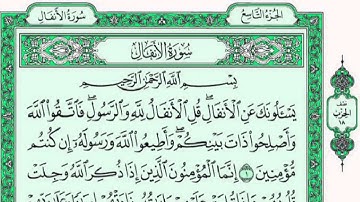 سُورَةُ الأَنفَال
الجُزءُ التَّاسِعُ
سُورَةُ الأَنفَال
بِسْمِ اللَّهِ الرَّحْمَٰنِ الرَّحِيمِ
يَسْـَٔلُونَكَ عَنِ ٱلْأَنفَالِۖ قُلِ ٱلْأَنفَالُ لِلَّهِ وَٱلرَّسُولِۖ فَٱتَّقُوا۟ ٱللَّهَ
وَأَصْلِحُوا۟ ذَاتَ بَيْنِكُمْۖ وَأَطِيعُوا۟ ٱللَّهَ وَرَسُولَهُۥٓ إِن كُنتُم
مُّؤْمِنِينَ ١ إِنَّمَا ٱلْمُؤْمِنُونَ ٱلَّذِينَ إِذَا ذُكِرَ ٱللَّهُ وَجِلَتْ
نصف
الحزب
١٨